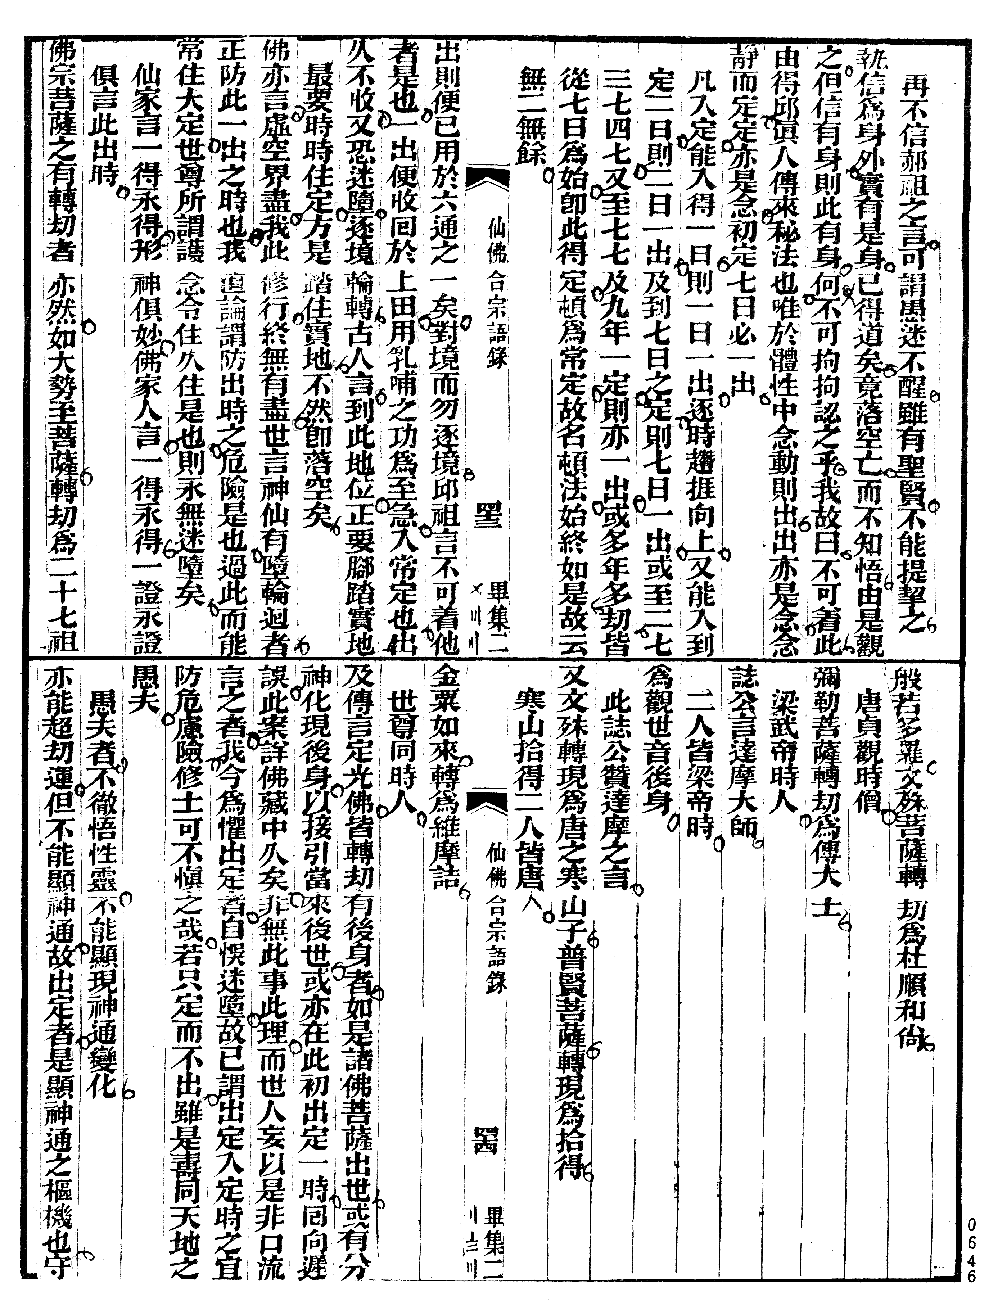 再不信郝祖之言可謂愚迷不醒雖有聖賢不能提挈之
執信爲身外實有是身已得道矣竟落空亡而不知悟由是觀
之但信有身則此有身何不可拘拘認之乎我故曰不可着此
由得邱眞人傳來秘法也唯於體性中念動則出出亦是念念
靜而定定亦是念初定七日必一出
凡入定能入得一日則一日一出逐時趲捱向上又能入到
定二日則二日一出及到七日之定則七日一出或至二七
三七四七又至七七及九年一定則亦一出或多年多劫皆
從七日爲始卽此得定頓爲常定故名頓法始終如是故云
無二無餘
仙佛合宗語錄
畢集二
出則便已用於六通之一矣對境而勿逐境邱祖言不可着他
者是也一出便收回於上田用乳哺之功爲至急入常定也出
久不收又恐迷墮逐境輪轉古人言到此地位正要腳踏實地
最要時時住定方是踏住實地不然卽落空矣
佛亦言虛空界盡我此修行終無有盡世言神仙有墮輪迴者
正防此一出之時也我道論謂防出時之危險是也過此而能
常住大定世尊所謂護念令住久住是也則永無迷墮矣
仙家言一得永得形神俱妙佛家人言一得永得一證永證
俱言此出時
佛宗菩薩之有轉刧者亦然如大勢至菩薩轉刧爲二十七祖
般若多羅文殊菩薩轉刧爲杜順和尙
唐貞觀時僧
彌勒菩薩轉刧爲傅大士
梁武帝時人
誌公言達摩大師
二人皆梁帝時
爲觀世音後身
此誌公贊達摩之言
又文殊轉現爲唐之寒山子普賢菩薩轉現爲拾得
寒山拾得二人皆唐人
仙佛合宗語錄
畢集二
金粟如來轉爲維摩詰
世尊同時人
及傳言定光佛皆轉刧有後身者如是諸佛菩薩出世或有分
神化現後身以接引當來後世或亦在此初出定一時囘向遲
誤此案詳佛藏中久矣非無此事此理而世人妄以是非口流
言之者我今爲懼出定者自悞迷墮故已謂出定入定時之宜
防危慮險修士可不愼之哉若只定而不出雖是壽同天地之
愚夫
愚夫者不徹悟性靈不能顯現神通變化
亦能超刧運但不能顯神通故出定者是顯神通之樞機也守
0646